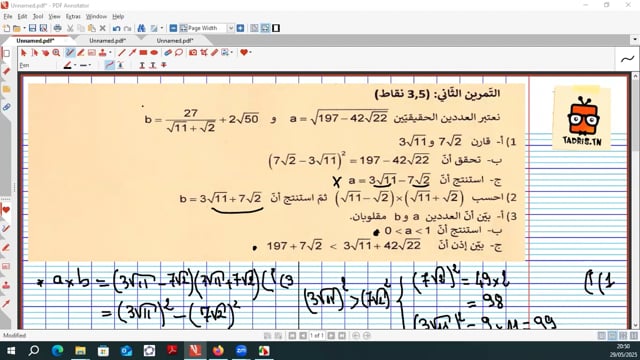 Unnamed.pdf* - PDF Annotator
File Edit View Insert Tool Favorites Window Help
Page Width
Unnamed.pdf* Unnamed.pdf* Unnamed.pdf*
Pen
التمرين الثاني: (3,5 نقاط)
نعتبر العددين الحقيقيّين a = √(197 − 42√22) و b = 27/(√11 + √2) + 2√50
1) أ- قارن 7√2 و 3√11
ب- تحقق أنّ (7√2 − 3√11)² = 197 − 42√22
ج- استنتج أنّ a = 3√11 − 7√2 X
2) احسب (√11 − √2) × (√11 + √2) ثمّ استنتج أنّ b = 3√11 + 7√2
3) أ- بيّن أنّ العددين a و b مقلوبان.
ب- استنتج أنّ 0 < a < 1
ج- بيّن إذن أنّ 197 + 7√2 < 3√11 + 42√22
TADRIS.TN
* a × b = (3√11 − 7√2)(3√11 + 7√2) (أ (3
= (3√11)² − (7√2)²
(3√11)² > (7√2)²
(7√2)² = 49 × 2
= 98
(3√11)² = 9 × 11 = 99
(أ (1
1 of 1
Modified
20:50
29/05/2025